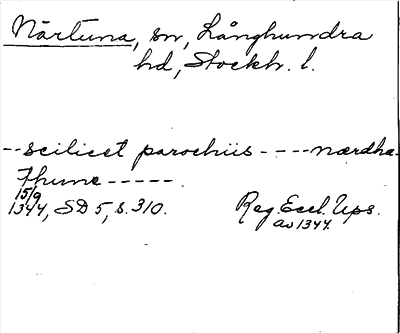 Närtuna, sn, Långhundra
hd, Stockh. l.
--scilicet parochiis - - - - nærdha-
thuna - - - - -
15/9
1344, SD 5, s. 310. Reg. Eccl. Ups.
av 1344.